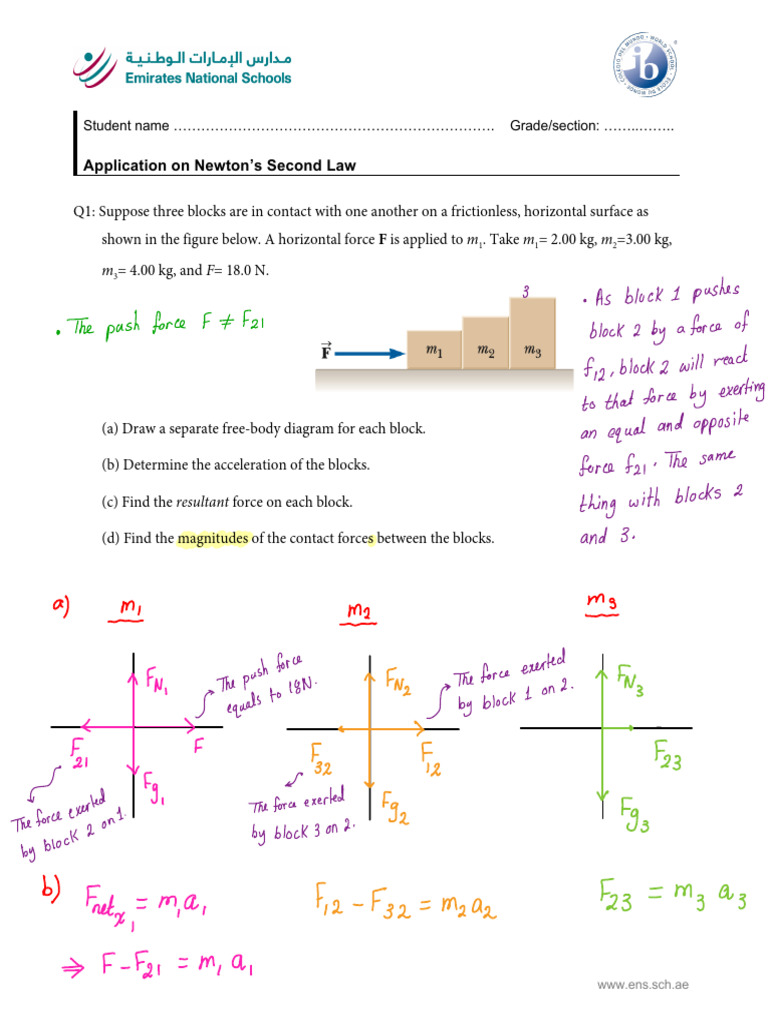 مدارس الإمارات الوطنية
Emirates National Schools
COLEGIO DEL MUNDO • WORLD SCHOOL • ÉCOLE DU MONDE •
ib
®
Student name ……………………………………………………………. Grade/section: ……..……..
Application on Newton's Second Law
Q1: Suppose three blocks are in contact with one another on a frictionless, horizontal surface as
shown in the figure below. A horizontal force F is applied to m₁. Take m₁= 2.00 kg, m₂=3.00 kg,
m₃= 4.00 kg, and F= 18.0 N.
• The push force F ≠ F₂₁
3
F⃗
m₁
m₂
m₃
• As block 1 pushes
block 2 by a force of
f₁₂, block 2 will react
to that force by exerting
an equal and opposite
force f₂₁. The same
thing with blocks 2
and 3.
(a) Draw a separate free-body diagram for each block.
(b) Determine the acceleration of the blocks.
(c) Find the resultant force on each block.
(d) Find the magnitudes of the contact forces between the blocks.
a) m₁ m₂ m₃
F_N₁
The push force
equals to 18N.
F₂₁
F
Fg₁
The force exerted
by block 2 on 1.
F_N₂
The force exerted
by block 1 on 2.
F₃₂
F₁₂
Fg₂
The force exerted
by block 3 on 2.
F_N₃
F₂₃
Fg₃
b) F_net_x₁ = m₁a₁ F₁₂ − F₃₂ = m₂a₂ F₂₃ = m₃ a₃
⇒ F − F₂₁ = m₁ a₁
www.ens.sch.ae